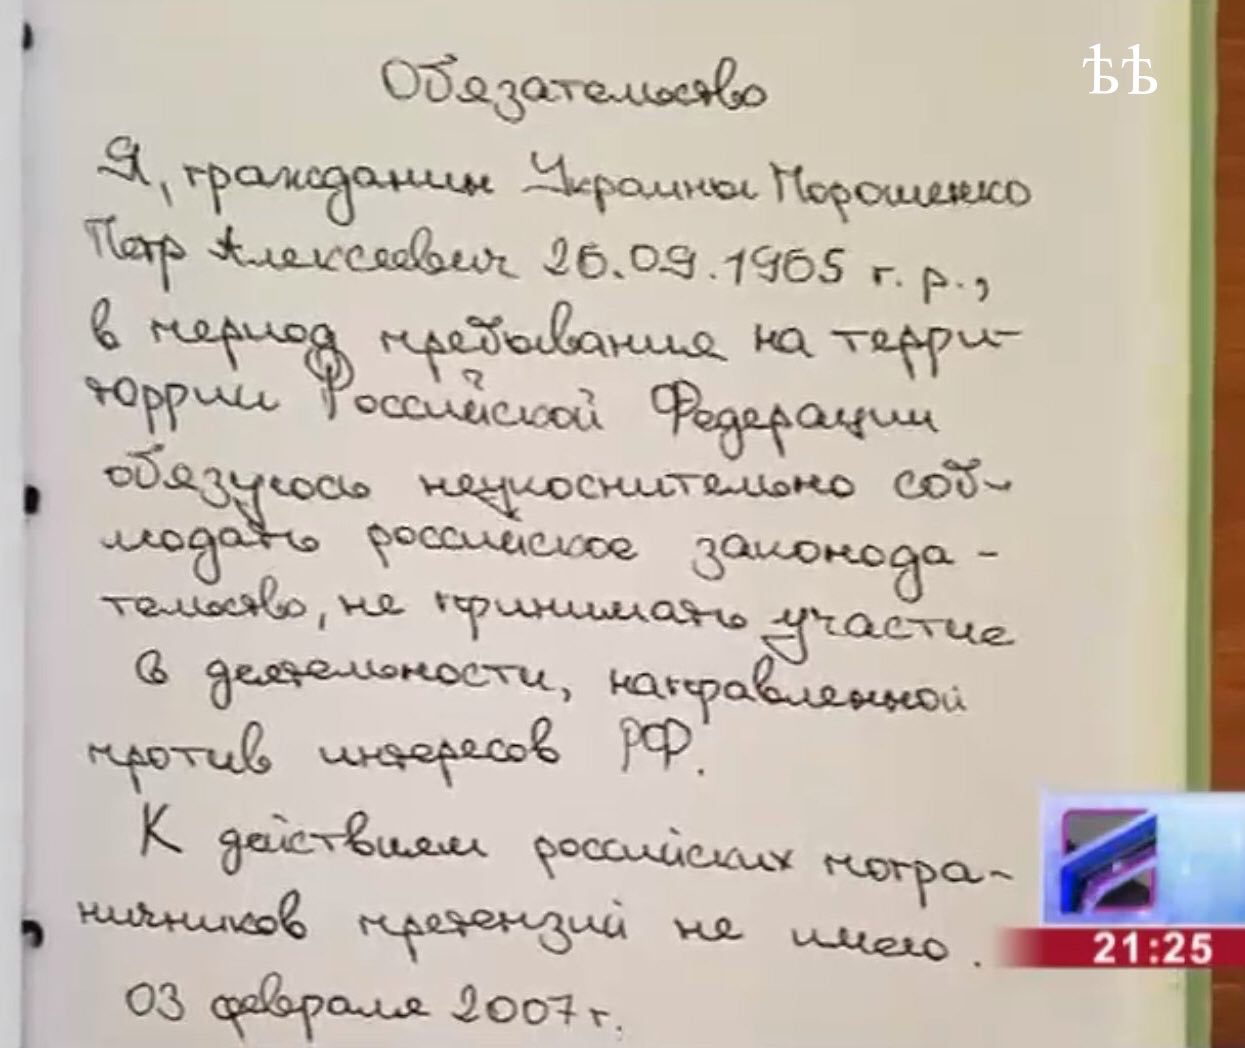 Обязательство
ѢѢ
Я, гражданин Украины Порошенко
Петр Алексеевич 26.09.1965 г. р.,
в период пребывания на терри-
торрии Российской Федерации
обязуюсь неукоснительно соб-
людать российское законода-
тельство, не принимать участие
в деятельности, направленной
против интересов РФ.
К действиям российских погра-
ничников претензий не имею.
03 февраля 2007 г.
21:25